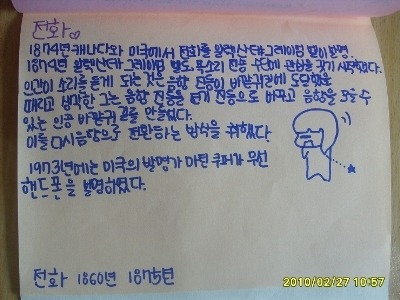 전화
1874년 캐나다와 미국에서 전화를 알렉산더 그레이엄 벨이 발명.
1874년 알렉산더 그레이엄 벨도 목소리 전송 수단에 관심을 갖기 시작했다.
인간이 소리를 듣게 되는 것은 음향 진동이 바깥귀길에 도달했을
때라고 생각한 그는 음향 진동을 전기 진동으로 바꾸고 음향을 모을 수
있는 인공 바깥귀 길을 만들었다.
이를 다시 음향으로 전환하는 방식을 취했다.
1973년에는 미국의 발명가 마틴 쿠퍼가 무선
핸드폰을 발명하였다.
전화 1860년 1875년
2010/02/27 10:57